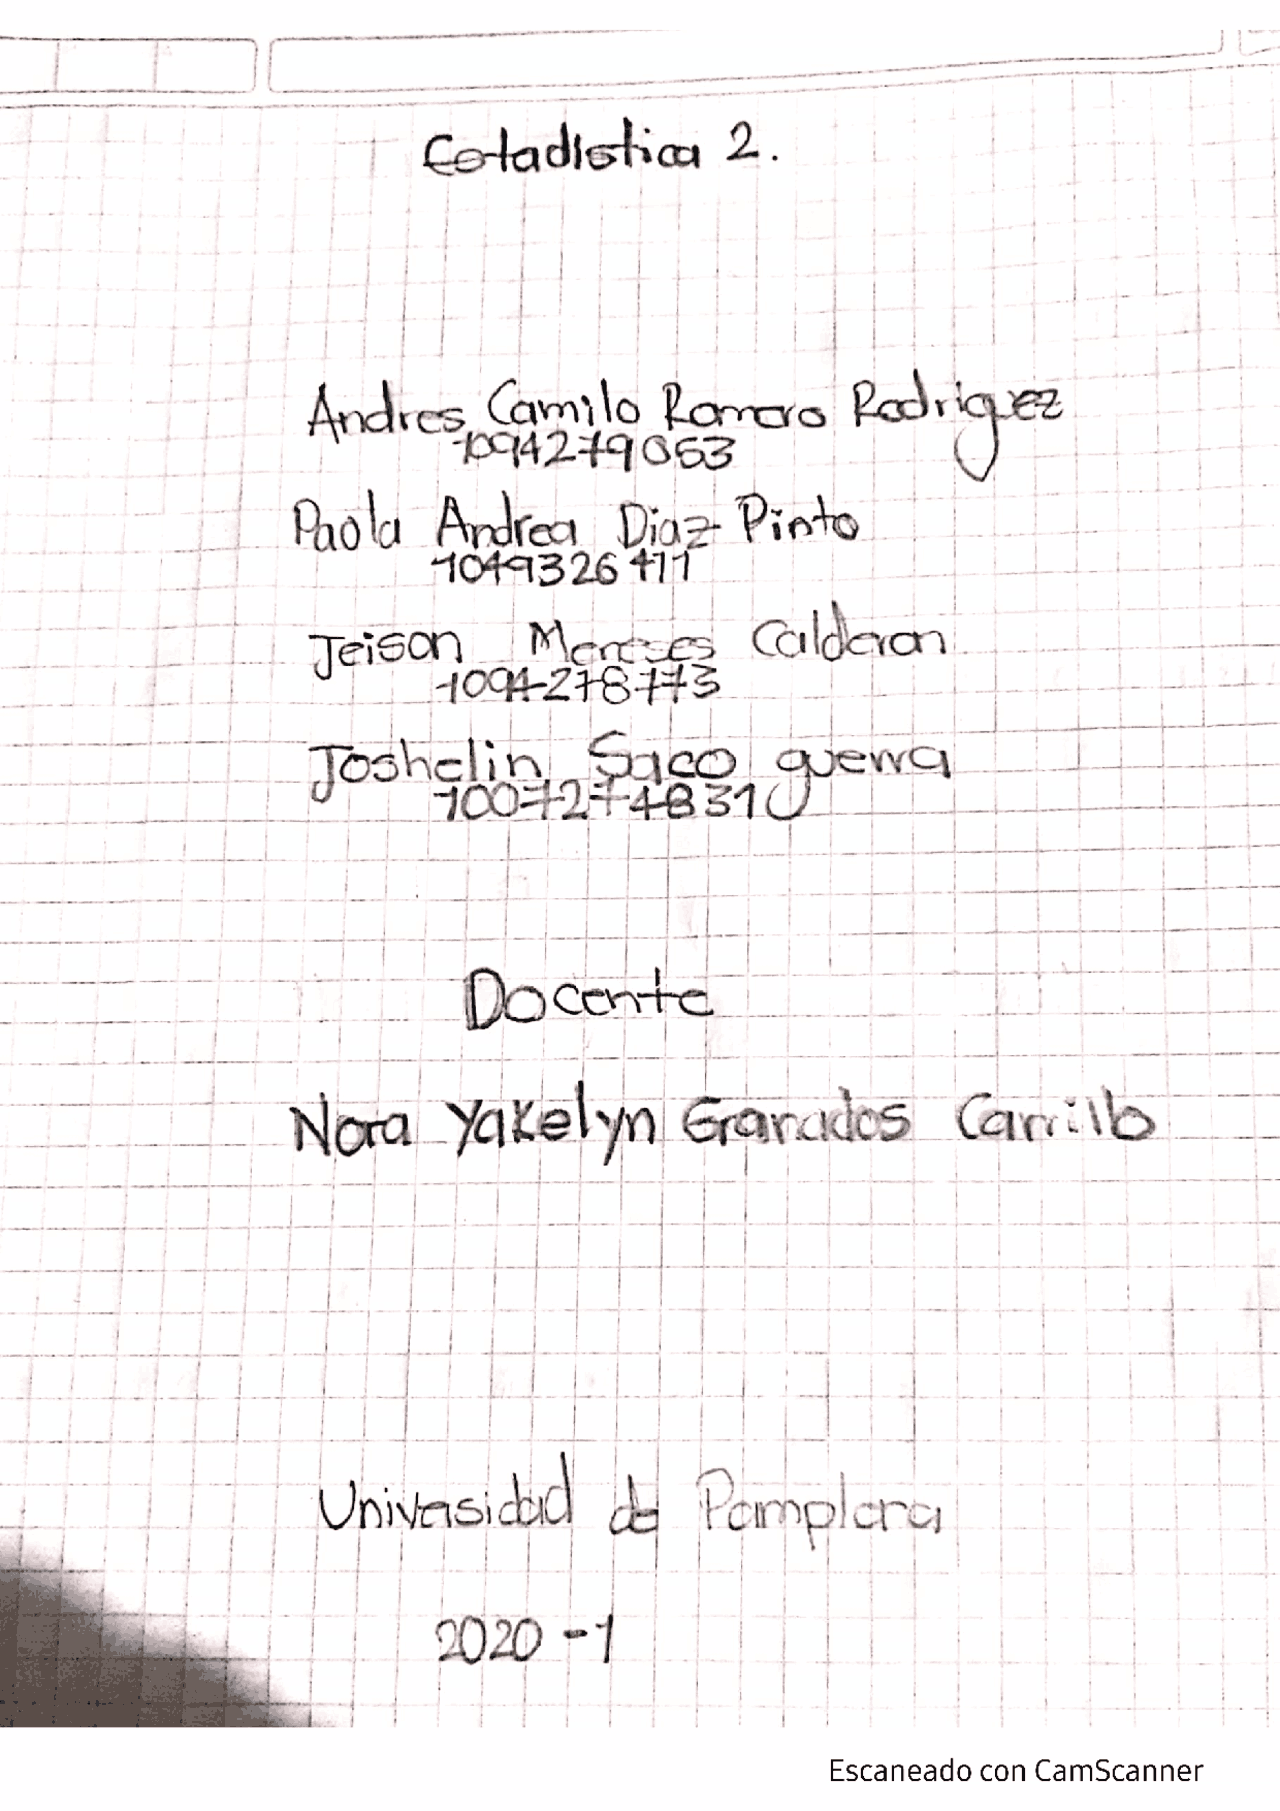 Estadistica 2.
Andres Camilo Romero Rodriguez
1094279053
Paola Andrea Diaz Pinto
1049326411
Jeison Meneses Calderon
1094278773
Joshelin Saco guerra
1007274831
Docente
Nora Yakelyn Granados Carrillo
Universidad de Pamplona
2020 -1
Escaneado con CamScanner